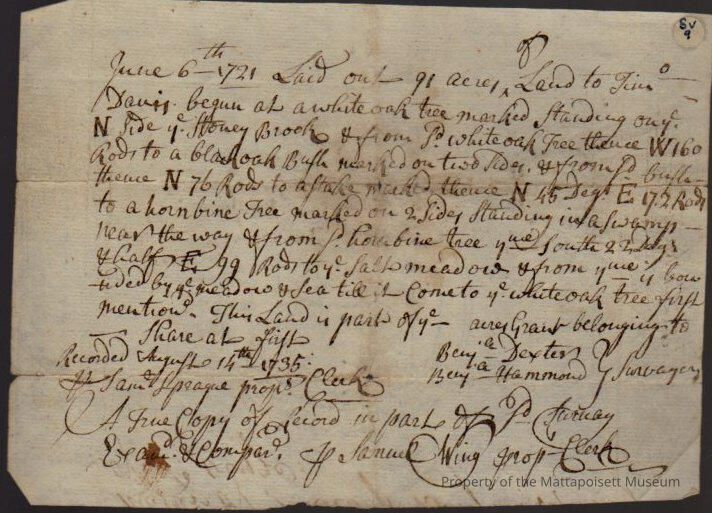 SV
9
June 6th 1721 Laid out 91 acres of Land to Timo
Davis. begun at a white oak tree marked Standing on ye.
N Side ye. Stoney Brook & from Sd. white oak Tree thence W 160
Rods to a black oak Bush marked on two Sides. & from Sd. bush
thence N 76 Rods to a stake marked thence N 45 Degs E 172 Rods
to a hornbine Tree marked on 2 Sides Standing in a Swamp
near the way & from Sd. hornbine tree South 22 Degs
& half E 99 Rods to ye. Salt meadow & from is bou
nded by ye. meadow & Sea till it Come to ye. white oak tree first
mentiond. This Land is part of ye acres Grant belonging to
Share at first
Recorded August 14th 1735.
Benja Dexter
Benja Hammond Survayers
P Saml Sprague propr. Clerk
A True Copy of Record in part of Sd Survay
Examd. & Compard. P Samuel Wing prop Clerk
Property of the Mattapoisett Museum